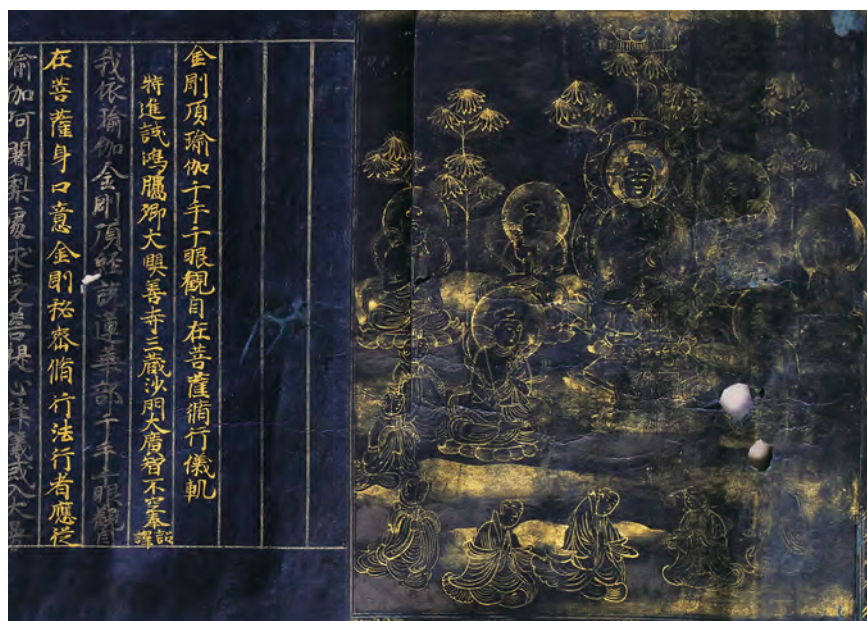 金剛頂瑜伽千手千眼觀自在菩薩脩行儀軌
特進試鴻臚卿大興善寺三藏沙門大廣智不空奉詔譯
我依瑜伽金剛頂経說蓮華部千手千眼觀自
在菩薩身口意金剛秘密脩行法行者應從
瑜伽阿闍梨處求受菩提心律儀或入大